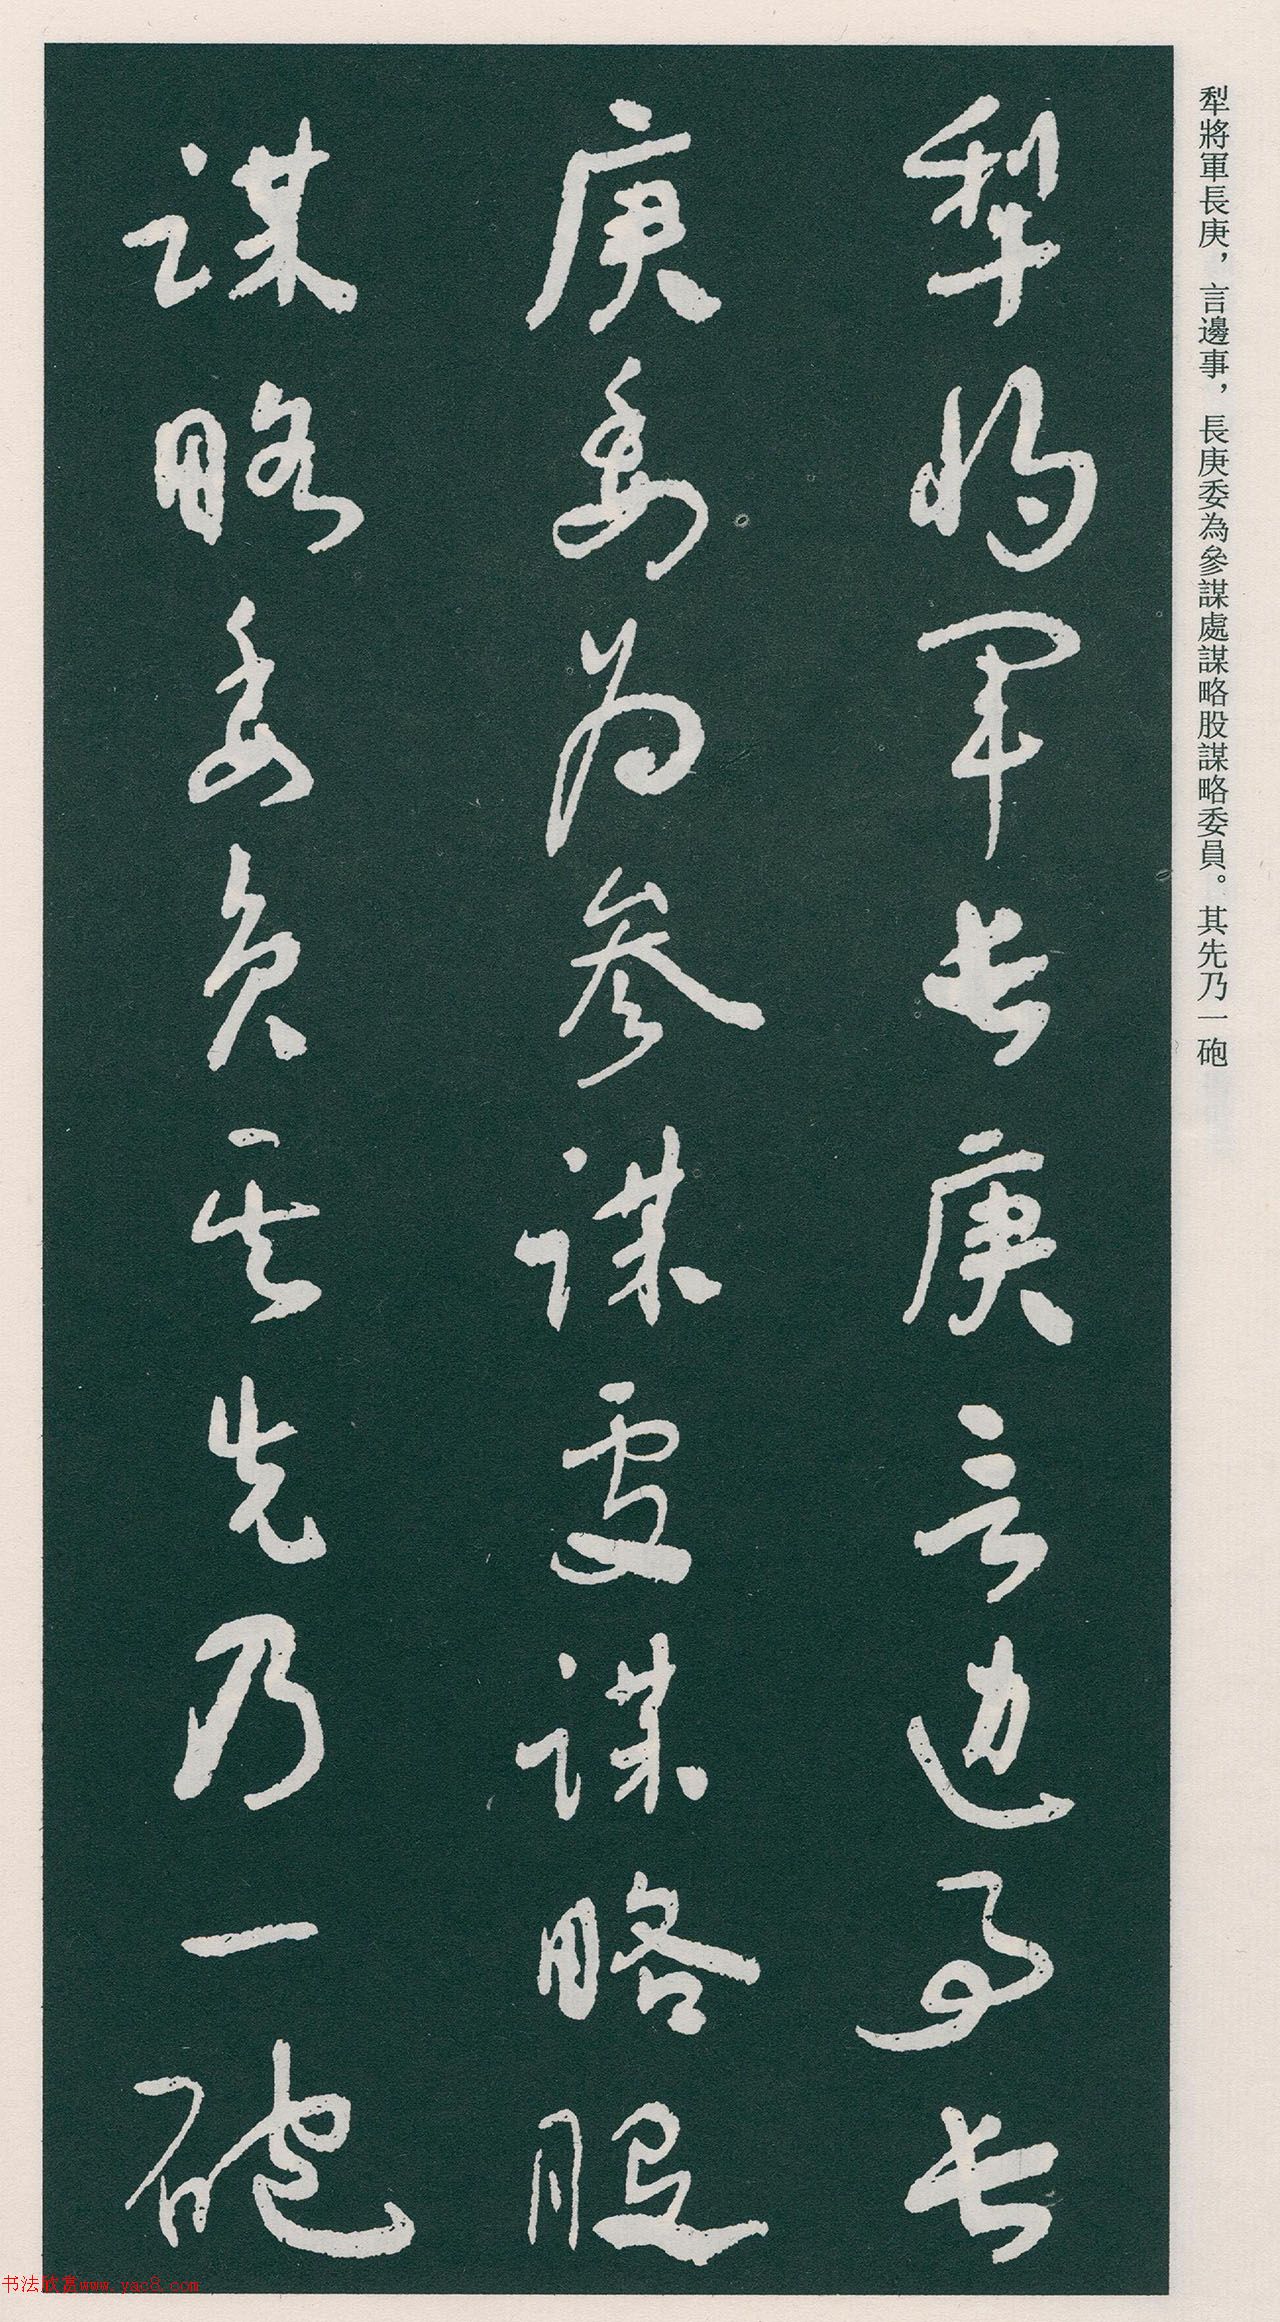 犁將軍長庚，言邊事，長庚委為參謀處謀略股謀略委員。其先乃一砲
犁将军长庚言边事长
庚委为参谋处谋略股
谋略委员其先乃一砲
书法欣赏www.yac8.com